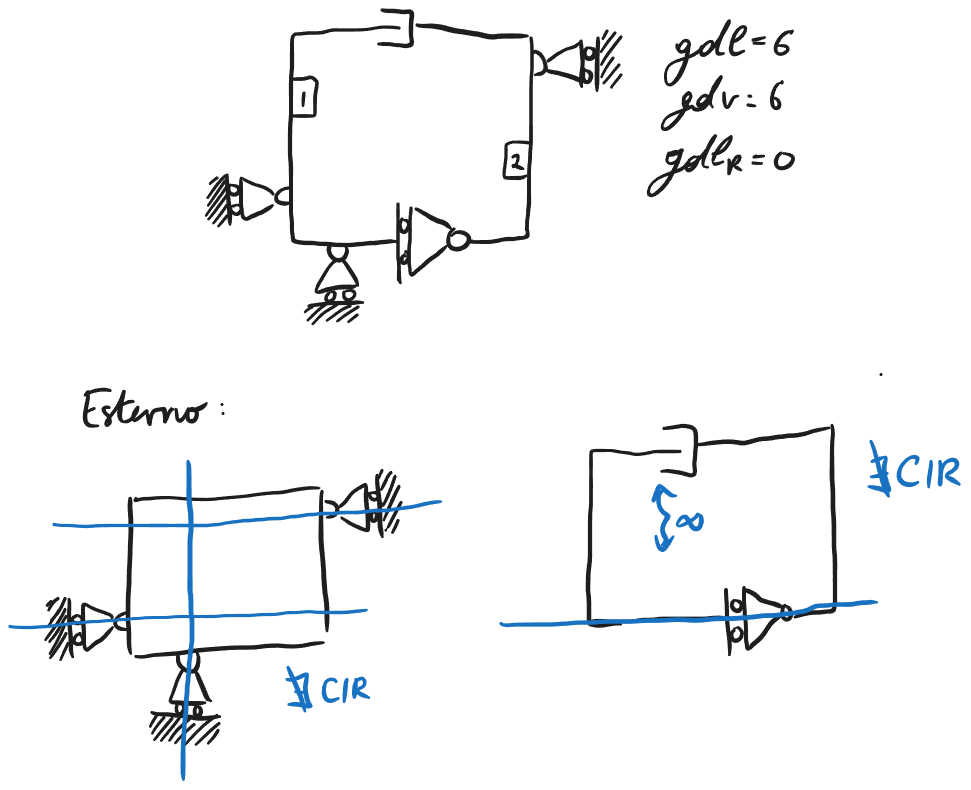 gdl=6
gdv=6
gdl_R=0
1
2
Esterno:
∄CIR
∞
∄CIR